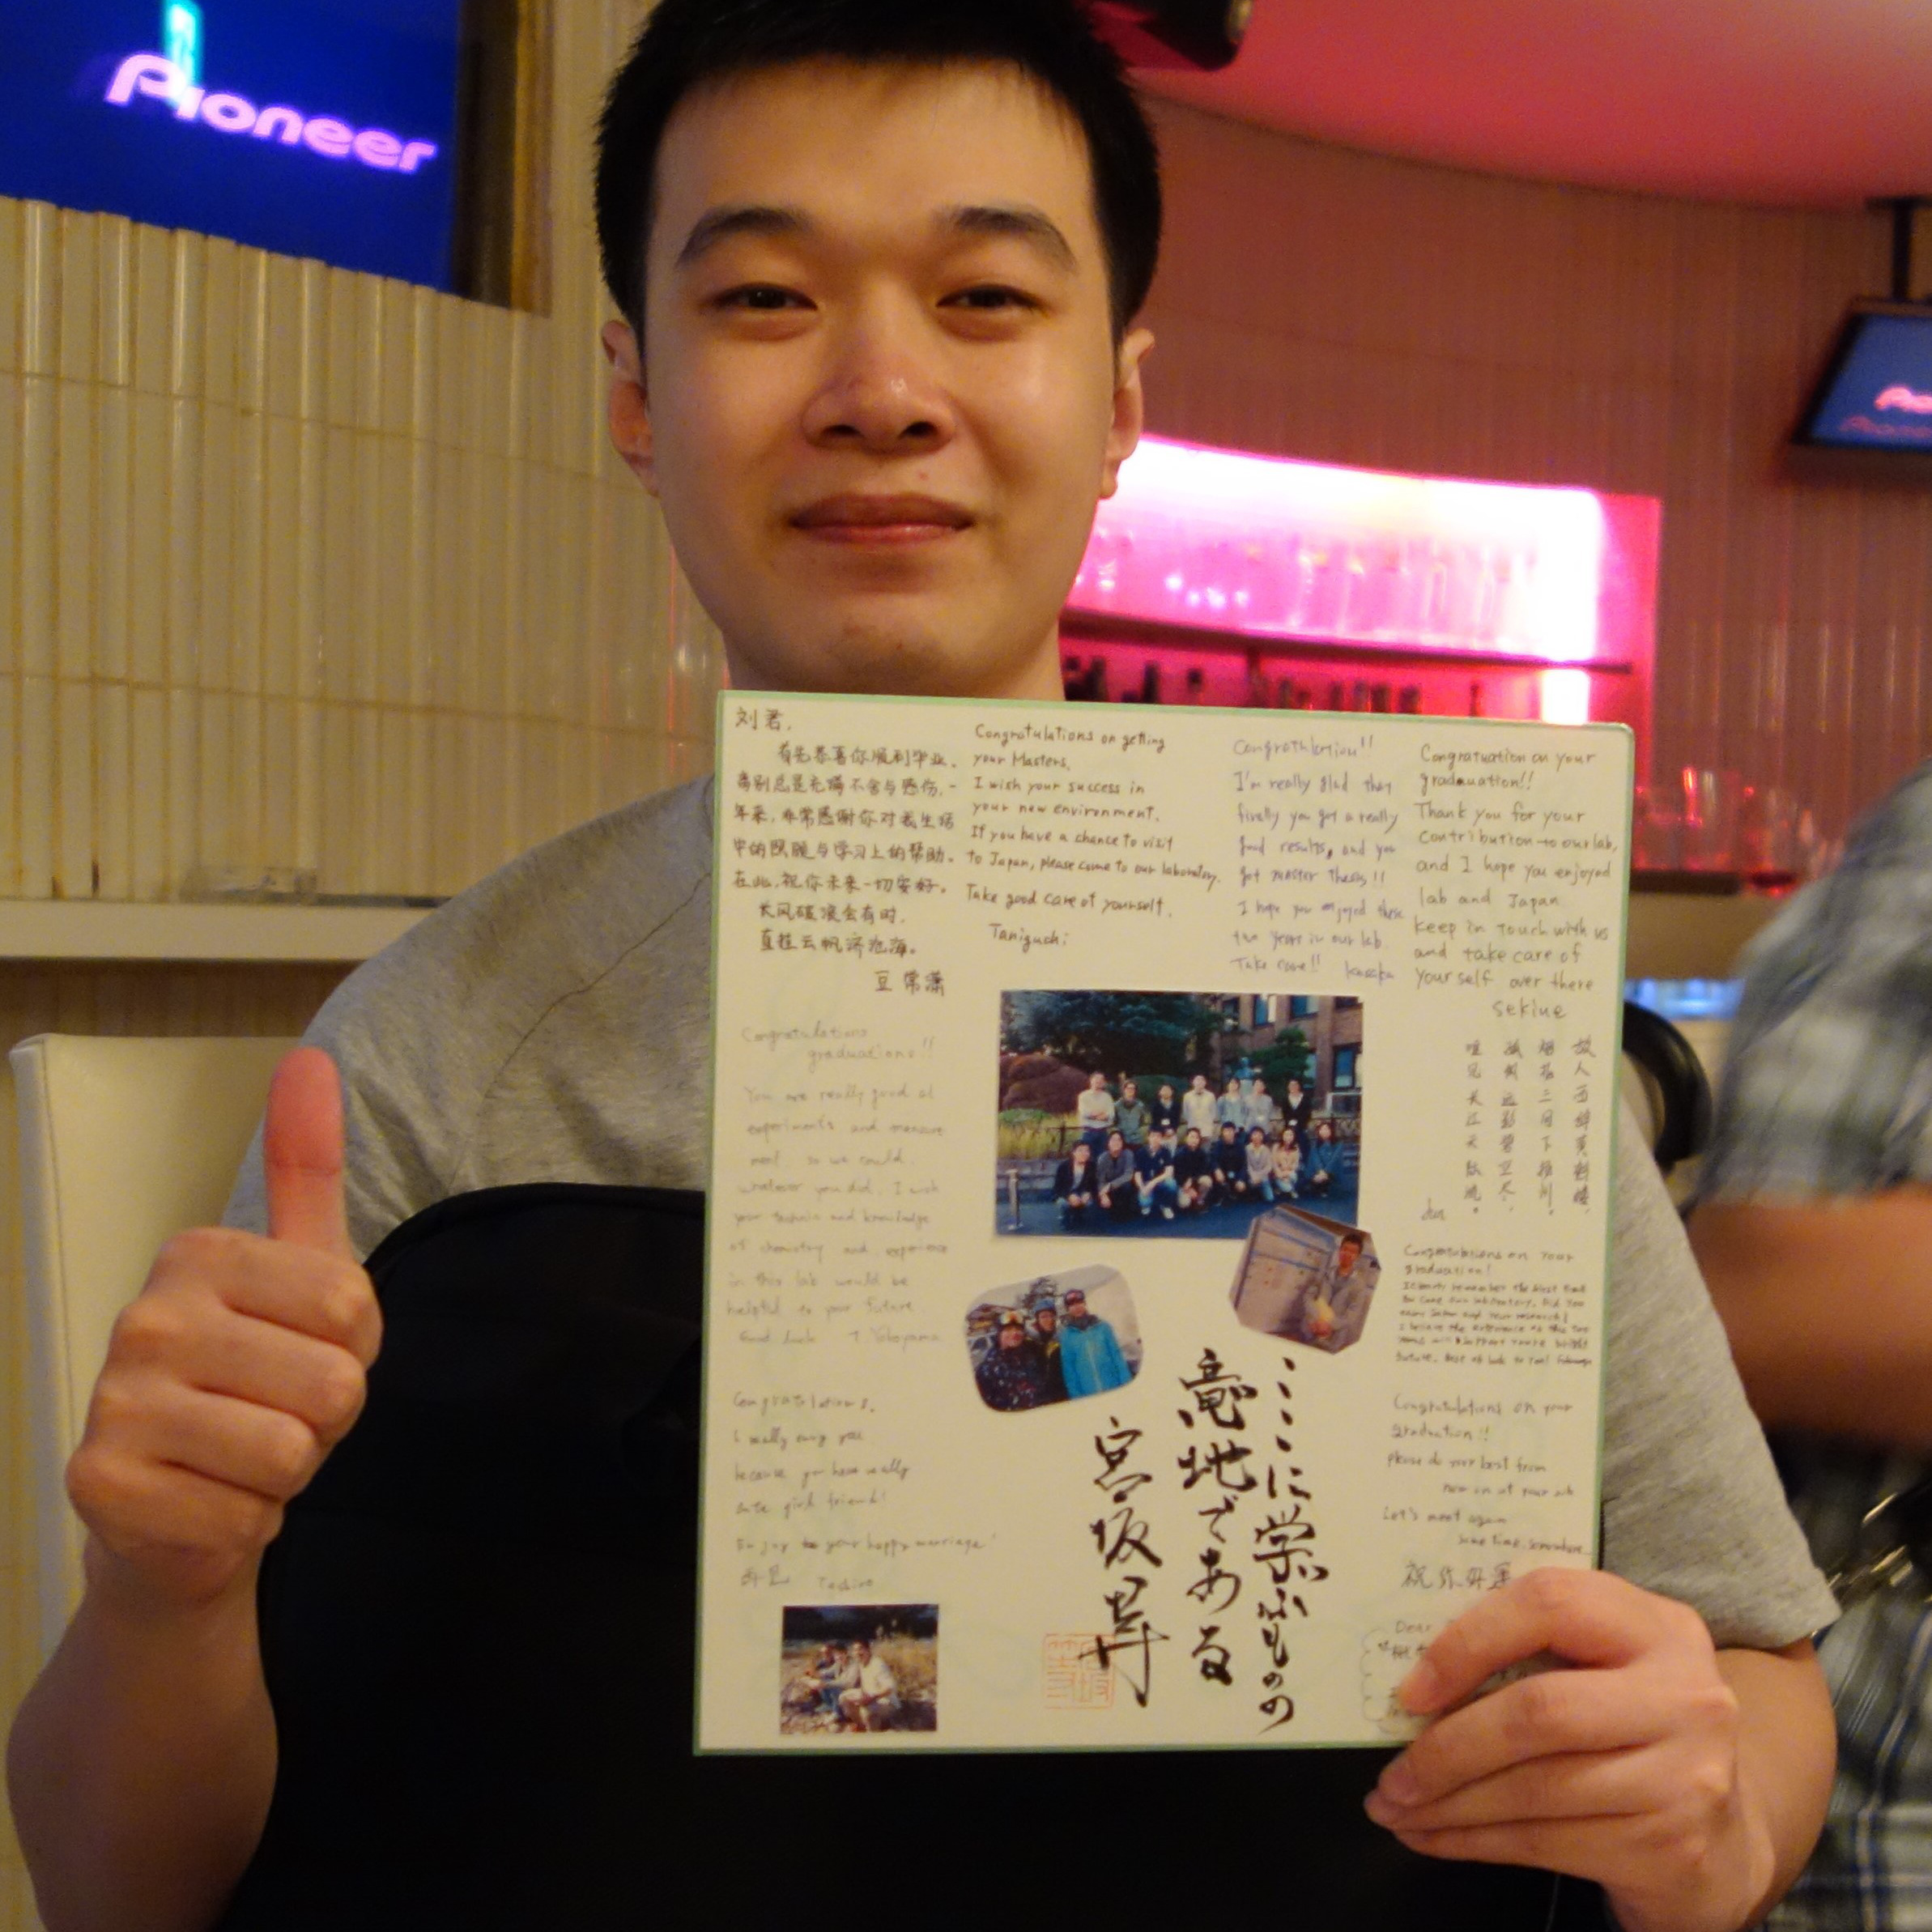 Pioneer
刘君,
首先恭喜你顺利毕业。
离别总是充满不舍与感伤,一
年来,非常感谢你对我生活
中的照顾与学习上的帮助。
在此,祝你未来一切安好。
长风破浪会有时,
直挂云帆济沧海。
豆常潇
Congratulations on getting
your Masters.
I wish your success in
your new environment.
If you have a chance to visit
to Japan, please come to our laboratory.
Take good care of yourself.
Taniguchi
Congratulation!!
I'm really glad that
finally you got a really
good results, and you
got master thesis!!
I hope you enjoyed these
two years in our lab.
Take care!!
Congratuation on your
graduation!!
Thank you for your
contribution to our lab,
and I hope you enjoyed
lab and Japan
keep in touch with us
and take care of
yourself over there
sekine
故人西辞黄鹤楼,
烟花三月下扬州。
孤帆远影碧空尽,
唯见长江天际流。
Congratulations
graduations!!
You are really good at
experiments and measure
ment. so we could
whatever you did. I wish
your technic and knowledge
of chemistry and experience
in this lab would be
helpful to your future
Good luck T Yokoyama
Congratulations on your
graduation!
Congratulations.
I really envy you
because you have really
cute girl friend!
Enjoy your happy marriage!
Tashiro
ここに学ぶものの
意地である
宮坂昇
Congratulations on your
graduation!!
please do your best from
now on at your
Let's meet again
some time, somewhere
祝你好运
Dear